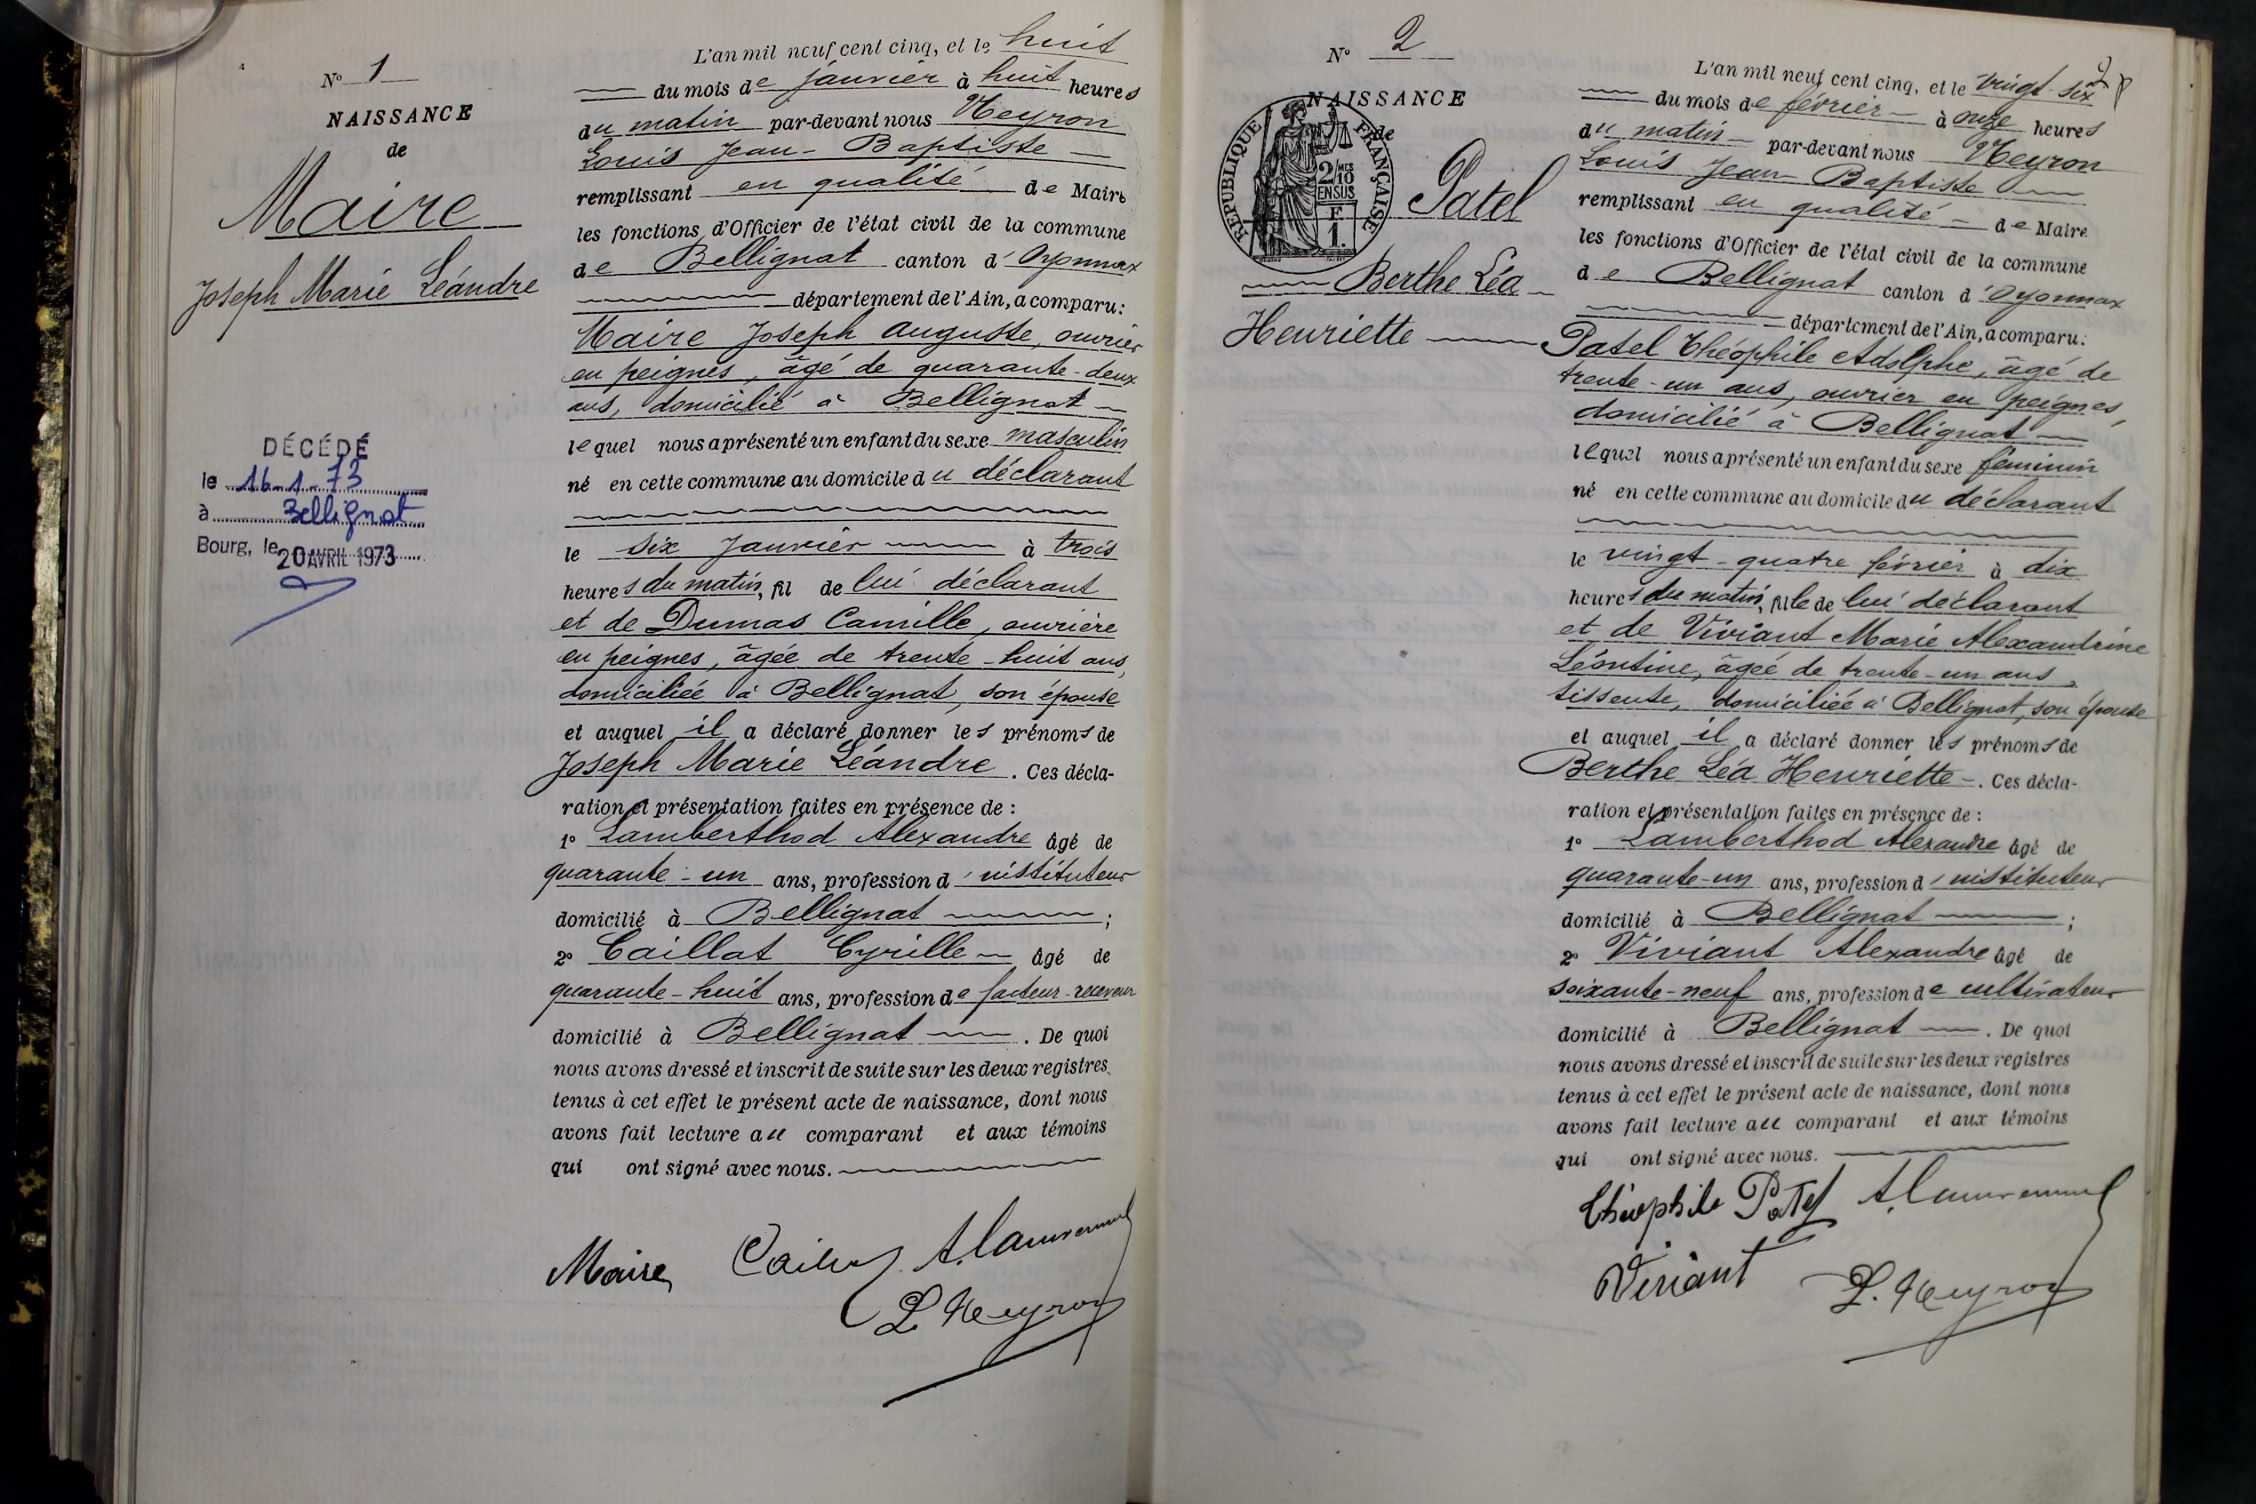 N° 1
NAISSANCE
de
Maire
Joseph Marie Léandre
DÉCÉDÉ
le 16-1-73
à Bellignat
Bourg, le 20 AVRIL 1973
L'an mil neuf cent cinq, et le huit
du mois de janvier à huit heures
du matin par-devant nous Neyron
Louis Jean-Baptiste
remplissant en qualité de Maire
les fonctions d'Officier de l'état civil de la commune
de Bellignat canton d'Oyonnax
département de l'Ain, a comparu:
Maire Joseph Auguste, ouvrier
en peignes, âgé de quarante-deux
ans, domicilié à Bellignat
lequel nous a présenté un enfant du sexe masculin
né en cette commune au domicile du déclarant
le six janvier à trois
heures du matin, fil de lui déclarant
et de Dumas Camille, ouvrière
en peignes, âgée de trente-huit ans,
domiciliée à Bellignat, son épouse
et auquel il a déclaré donner les prénoms de
Joseph Marie Léandre. Ces décla-
ration et présentation faites en présence de :
1° Lamberthod Alexandre âgé de
quarante-un ans, profession d'instituteur
domicilié à Bellignat ;
2° Caillat Cyrille âgé de
quarante-huit ans, profession de facteur-receveur
domicilié à Bellignat. De quoi
nous avons dressé et inscrit de suite sur les deux registres
tenus à cet effet le présent acte de naissance, dont nous
avons fait lecture au comparant et aux témoins
qui ont signé avec nous.
Maire
L. Neyron
N° 2
NAISSANCE
de
RÉPUBLIQUE FRANÇAISE
2/10 MES
EN SUS
F
1.
Patel
Berthe Léa
Henriette
2
L'an mil neuf cent cinq, et le vingt-six
du mois de février à onze heures
du matin par-devant nous Neyron
Louis Jean Baptiste
remplissant en qualité de Maire
les fonctions d'Officier de l'état civil de la commune
de Bellignat canton d'Oyonnax
département de l'Ain, a comparu:
Patel Théophile Adolphe, âgé de
trente-un ans, ouvrier en peignes,
domicilié à Bellignat
lequel nous a présenté un enfant du sexe féminin
né en cette commune au domicile du déclarant
le vingt-quatre février à dix
heures du matin, fille de lui déclarant
et de Viviant Marie Alexandrine
Léontine, âgée de trente-un ans,
tisseuse, domiciliée à Bellignat, son épouse
et auquel il a déclaré donner les prénoms de
Berthe Léa Henriette. Ces décla-
ration et présentation faites en présence de :
1° Lamberthod Alexandre âgé de
quarante-un ans, profession d'instituteur
domicilié à Bellignat ;
2° Viviant Alexandre âgé de
soixante-neuf ans, profession de cultivateur
domicilié à Bellignat. De quoi
nous avons dressé et inscrit de suite sur les deux registres
tenus à cet effet le présent acte de naissance, dont nous
avons fait lecture au comparant et aux témoins
qui ont signé avec nous.
Théophile Patel
Viviant L. Neyron